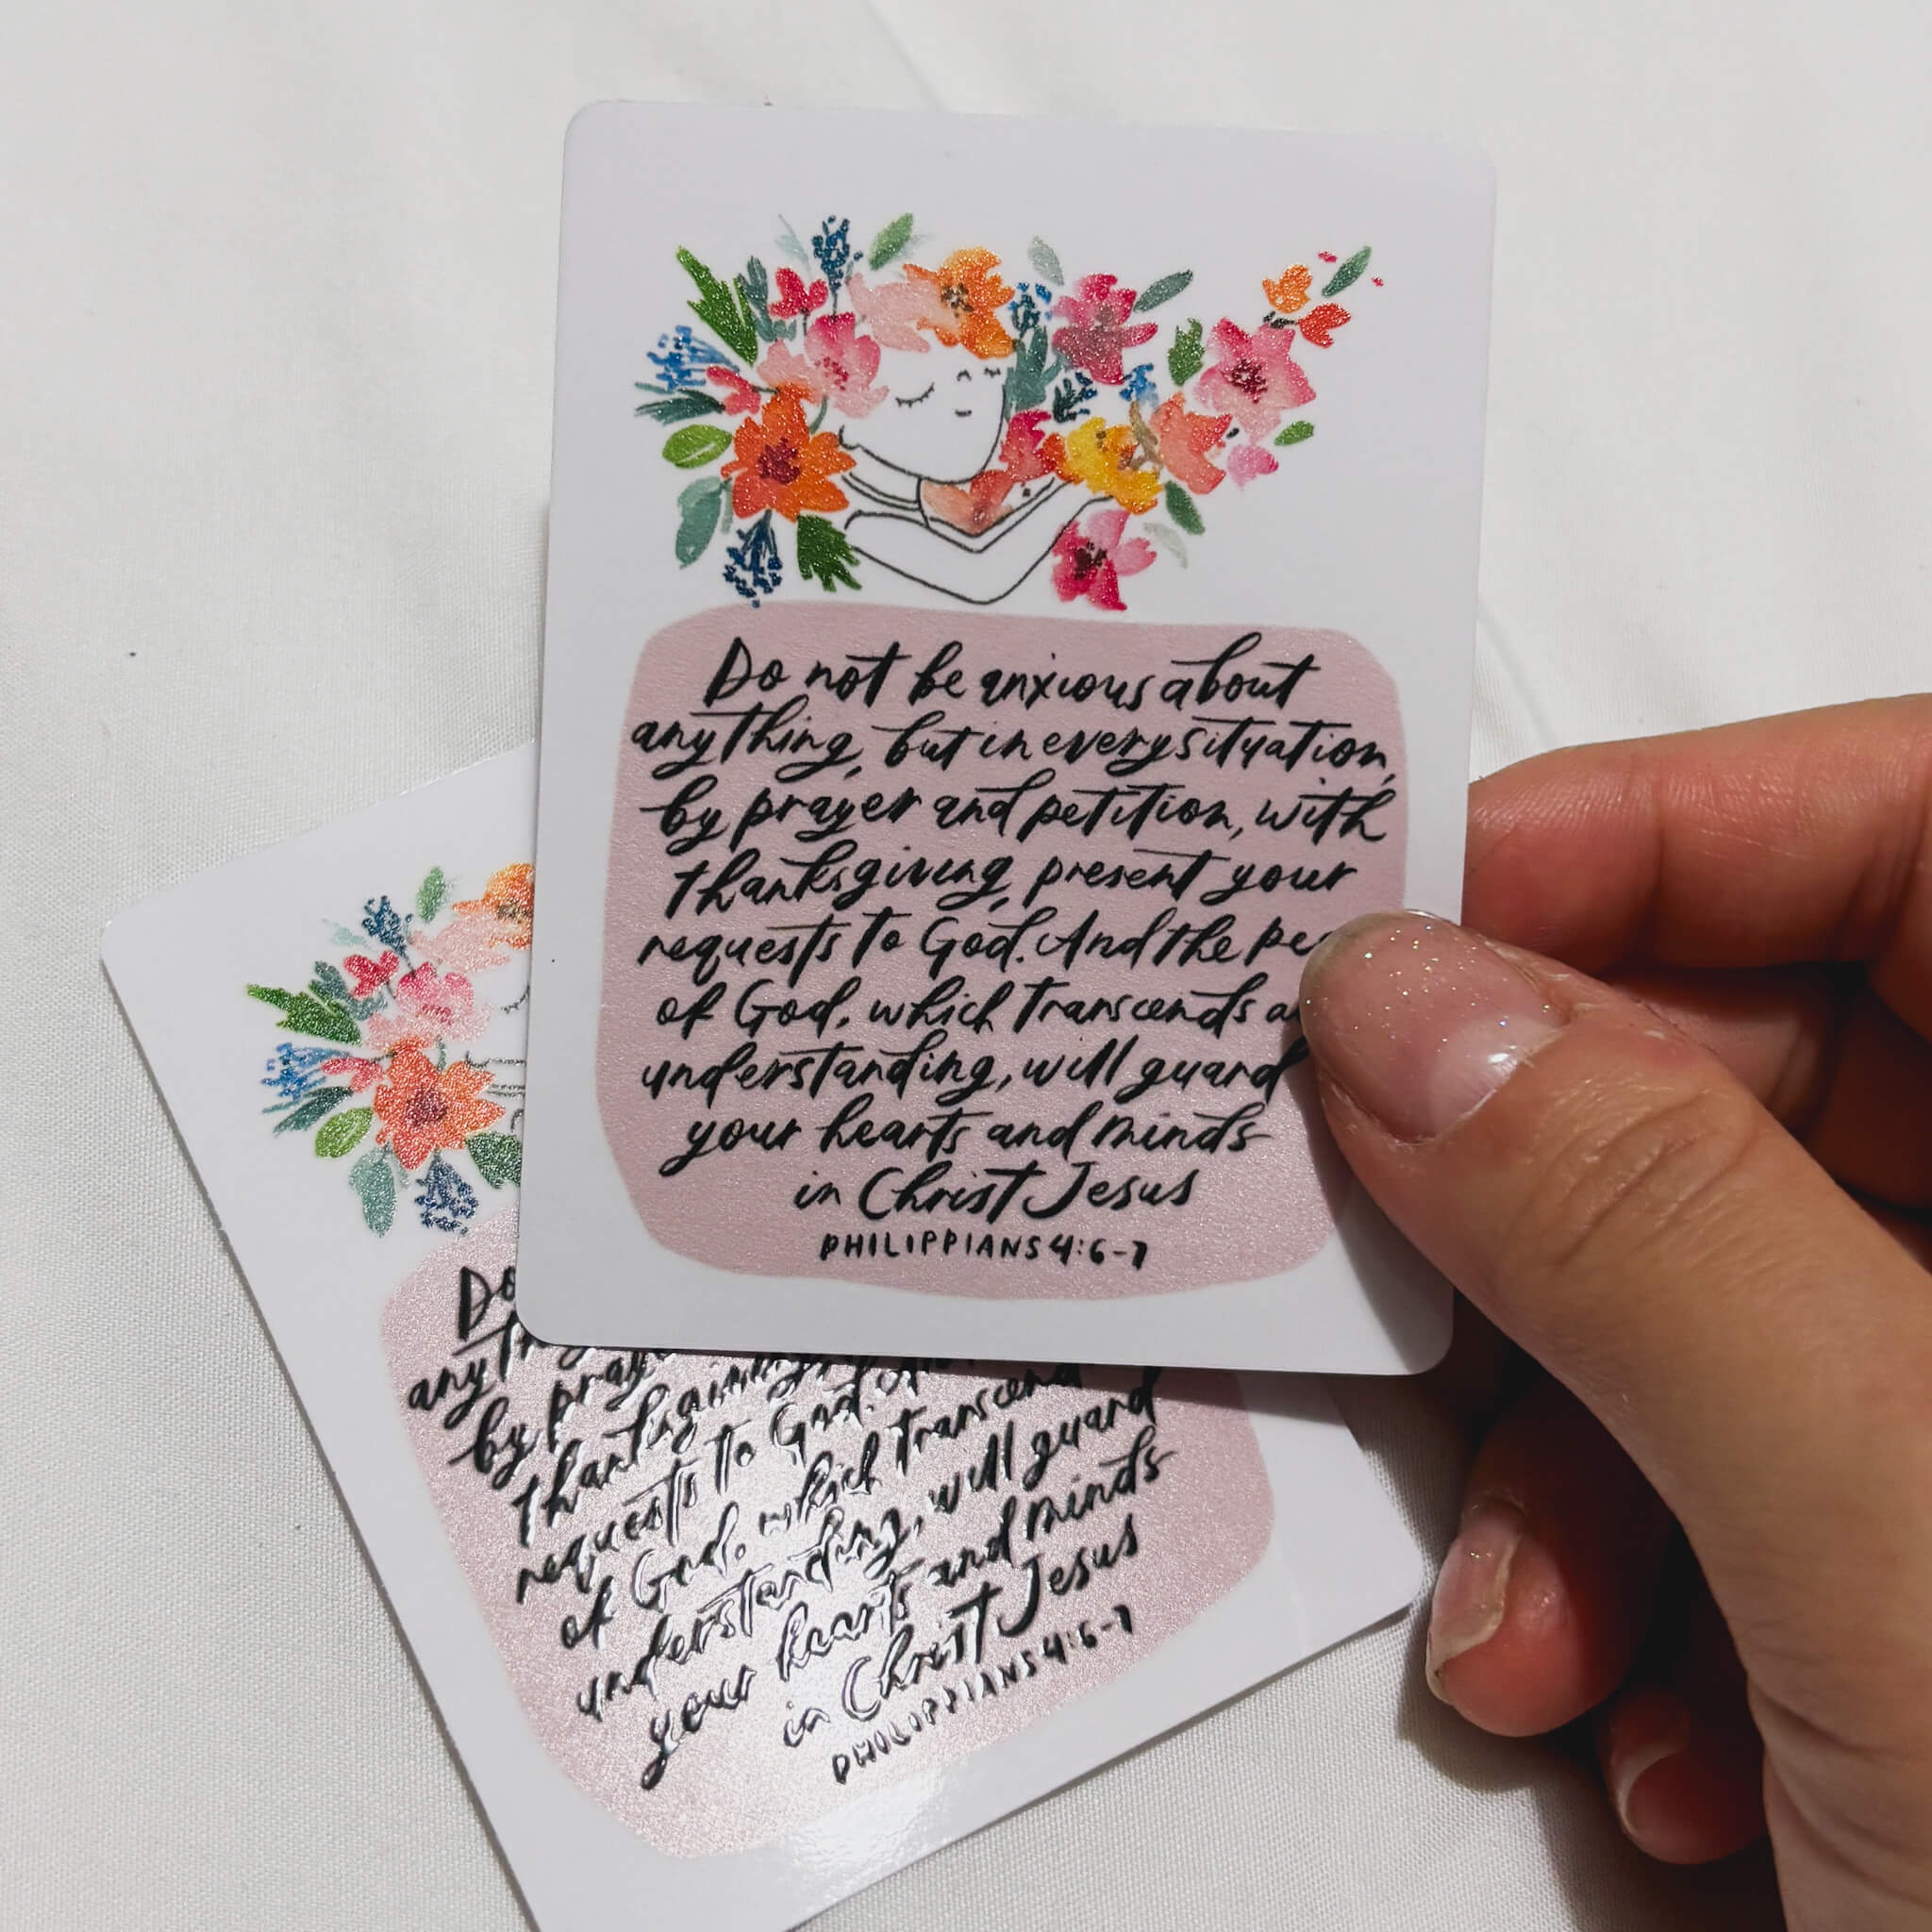 Do not be anxious about
anything, but in every situation,
by prayer and petition, with
thanksgiving, present your
requests to God. And the pe
of God, which transcends a
understanding, will guard
your hearts and minds
in Christ Jesus
PHILIPPIANS 4:6-7
Do
anyth
by praye
thanksgiving,
requests to God.
of God, which transcend
understanding, will guard
your hearts and minds
in Christ Jesus
PHILIPPIANS 4:6-7